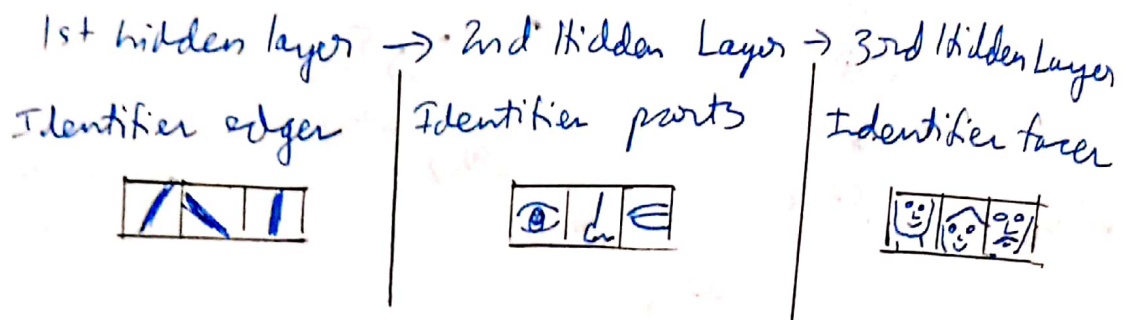 1st hidden layer → 2nd Hidden Layer → 3rd Hidden Layer
Identifier edger | Identifier parts | Identifier facer